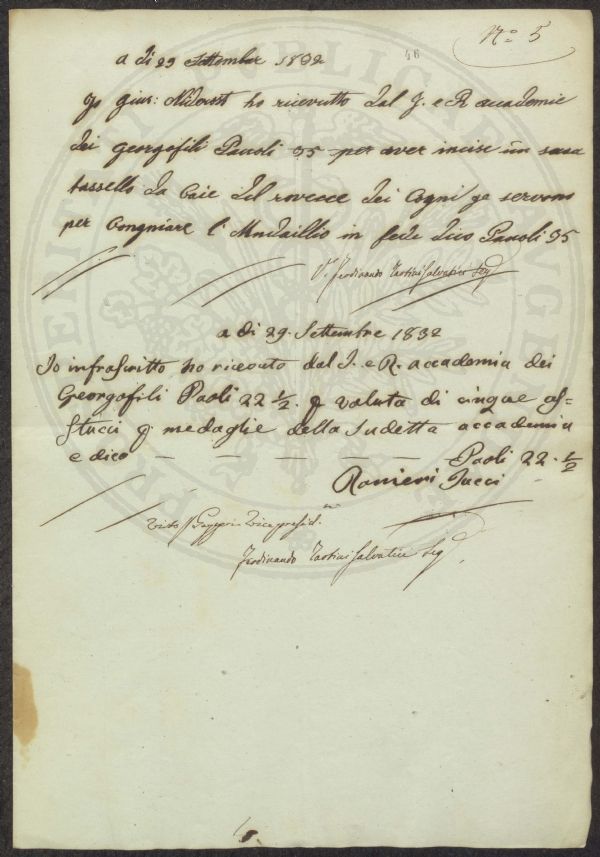 N.º 5
46
a di 29 Settember 1832
Jo Gius: Niderost ho ricevutto dal J. e R. accademie
dei georgofili Pauoli 35 per aver incise un
tassello da Caie del rovecce dei Cogni ge servono
per Congniare l' Mndaillio in fede dico Pauoli 35
V. Ferdinando Tartini Salvatici Seg.
a di 29. Settembre 1832
Io infrascritto ho riceuto dal I. e R. accademia dei
Georgofili Paoli 22 ½. p valuta di cinque as=
stucci p medaglie della Sudetta accademia
e dico — — — — — — Paoli 22. ½
Ranieri Tucci
Visto Vice presid.
Ferdinando Tartini Salvatici Seg.